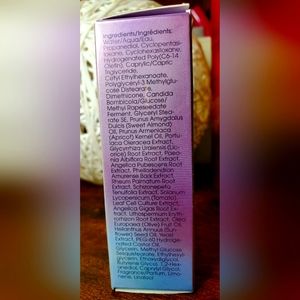 Ingredients/Ingrédients:
Water/Aqua/Eau,
Propanediol, Cyclopentasi-
loxane, Cyclohexasiloxane,
Hydrogenated Poly(C6-14
Olefin), Caprylic/Capric
Triglyceride,
Cetyl Ethylhexanoate,
Polyglyceryl-3 Methylglu-
cose Distearate,
Dimethicone, Candida
Bombicola/Glucose/
Methyl Rapeseedate
Ferment, Glyceryl Stearate
SE, Prunus Amygdalus
Dulcis (Sweet Almond)
Oil, Prunus Armeniaca
(Apricot) Kernel Oil, Portu-
laca Oleracea Extract,
Glycyrrhiza Uralensis (Lic-
orice) Root Extract, Paeo-
nia Albiflora Root Extract,
Angelica Pubescens Root
Extract, Phellodendron
Amurense Bark Extract,
Rheum Palmatum Root
Extract, Schizonepeta
Tenuifolia Extract, Solanum
Lycopersicum (Tomato)
Leaf Cell Culture Extract,
Angelica Gigas Root Ex-
tract, Lithospermum Eryth-
rorhizon Root Extract, Olea
Europaea (Olive) Fruit Oil,
Helianthus Annuus (Sun-
flower) Seed Oil, Yeast
Extract, PEG-60 Hydroge-
nated Castor Oil,
Glycerin, Methyl Glucose
Sesquistearate, Ethylhexyl-
glycerin, Phenoxyethanol,
Butylene Glycol, 1,2-Hex-
anediol, Caprylyl Glycol,
Fragrance/Parfum, Limo-
nene, Linalool